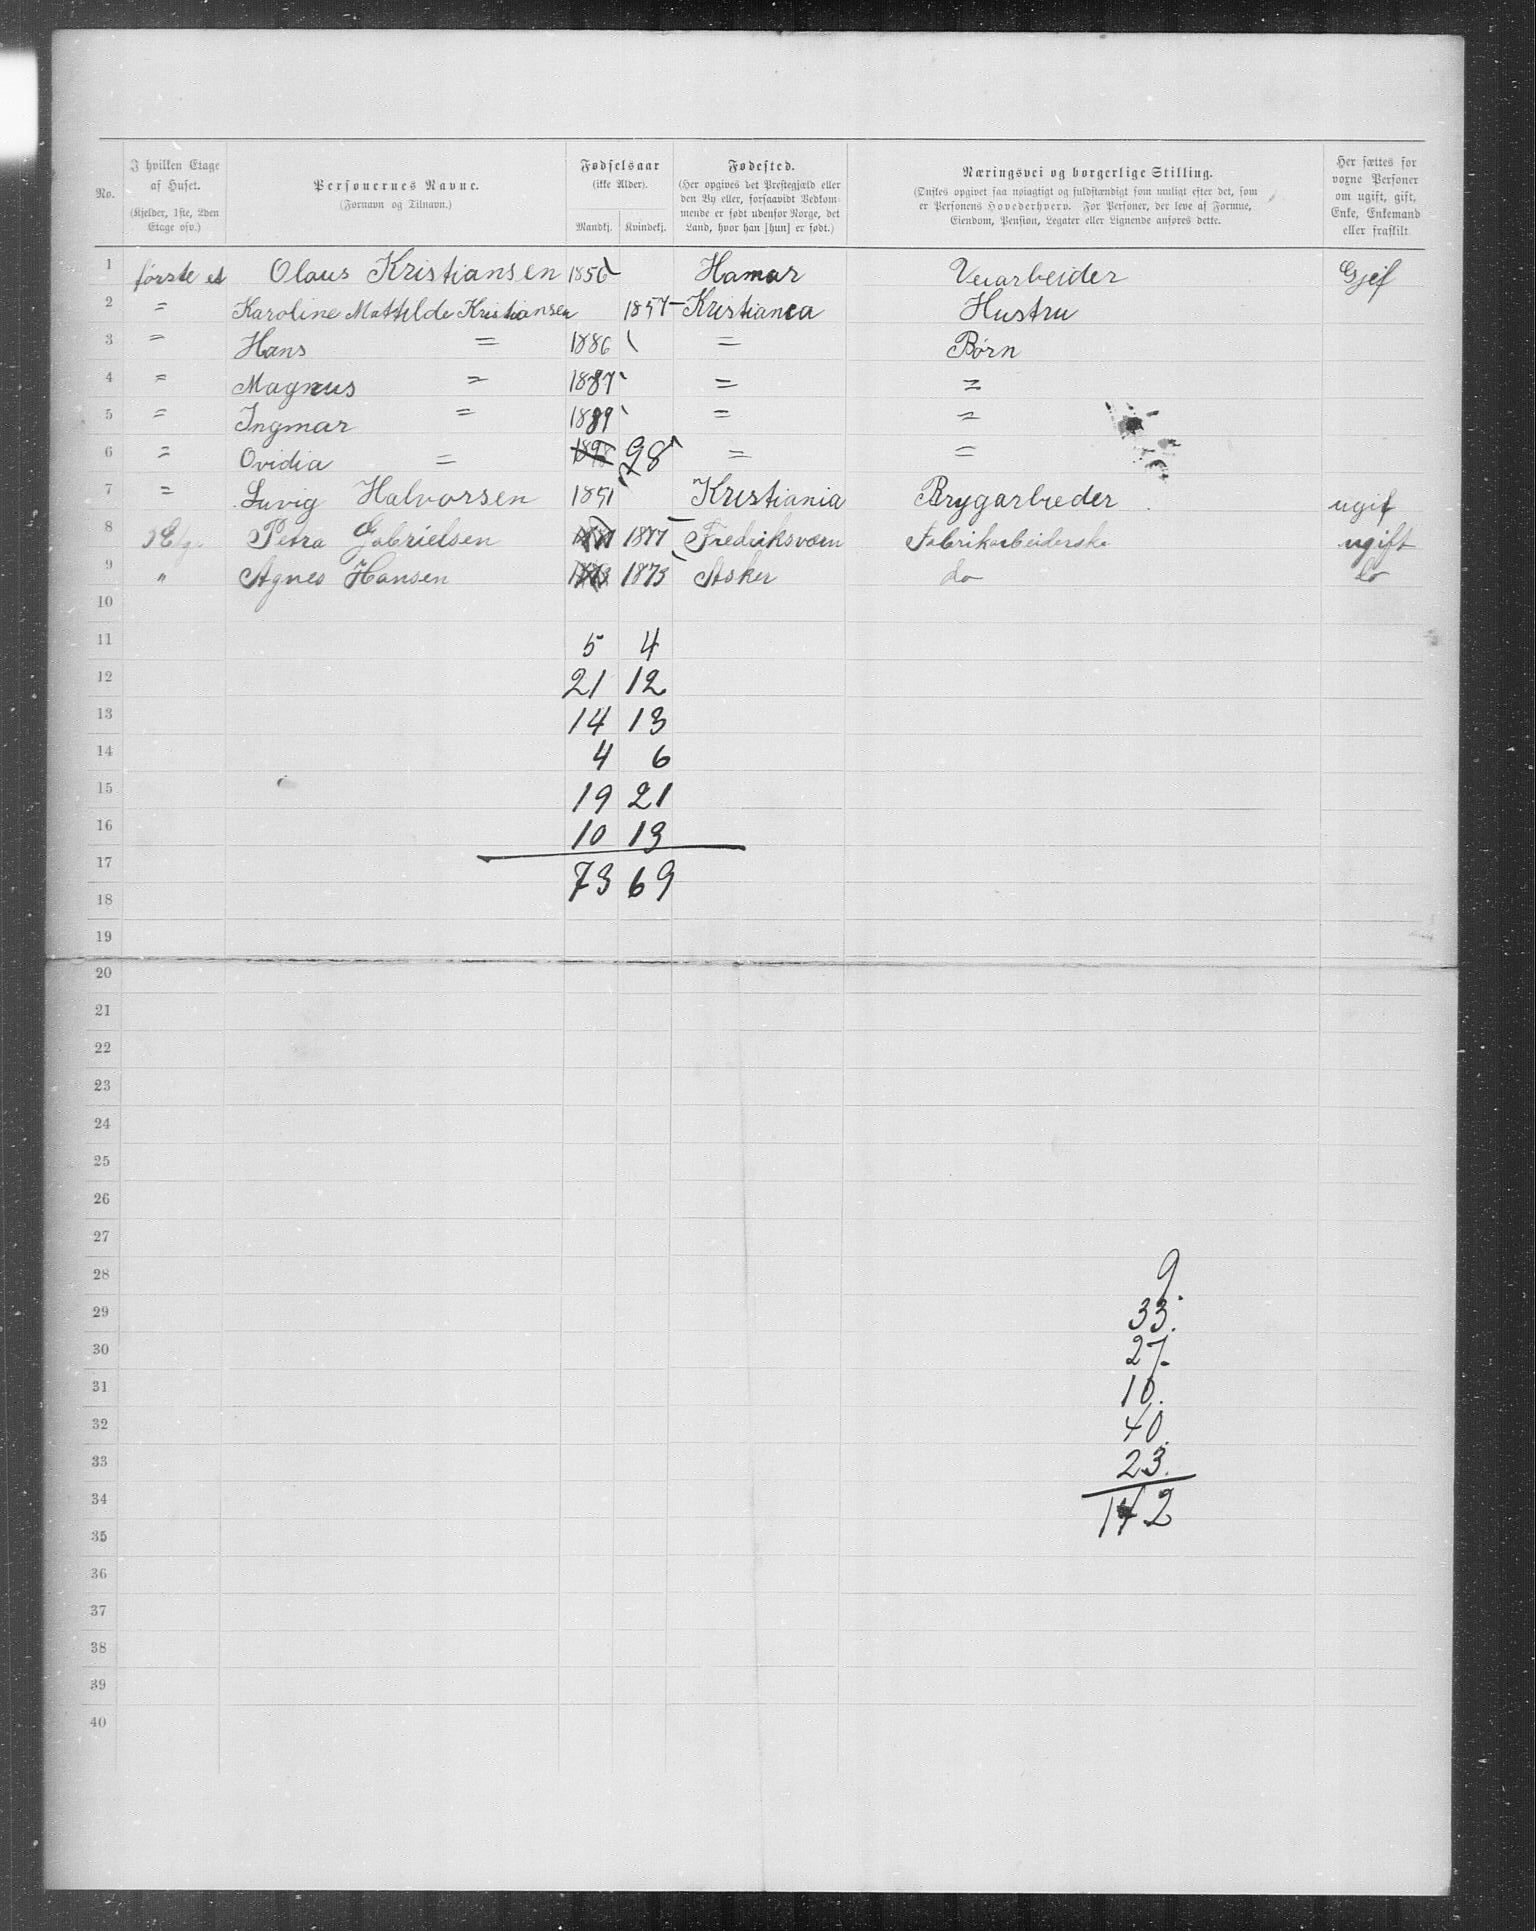 No.
I hvilken Etage af Huset.
(Kjelder, 1ste, 2den Etage osv.)
Personernes Navne.
(Fornavn og Tilnavn.)
Fødselsaar
(ikke Alder).
Mandkj. Kvindekj.
Fødested.
(Her opgives det Prestegjæld eller den By eller, forsaavidt Vedkommende er født udenfor Norge, det Land, hvor han [hun] er født.)
Næringsvei og borgerlige Stilling.
(Ønskes opgivet saa nøiagtigt og fuldstændigt som muligt efter det, som er Personens Hovederhverv. For Personer, der leve af Formue, Eiendom, Pension, Legater eller Lignende anføres dette.
Her sættes for voxne Personer om ugift, gift, Enke, Enkemand eller fraskilt.
1 første et Olaus Kristiansen 1856 Hamar Veiarbeider Gjef
2 = Karoline Mattilde Kristiansen 1857 Kristiania Hustru
3 = Hans = 1886 = Børn
4 = Magnus = 1887 = =
5 = Ingmar = 1889 = =
6 = Ovidia = 1898 98 = =
7 = Luvig Halvorsen 1851 Kristiania Brygarbeder ugif
8 Petra Gabrielsen 1877 1877 Fredriksværn Fabrikarbeiderske ugift
9 " Agnes Hansen 1873 1873 Asker do do
10
11 5 4
12 21 12
13 14 13
14 4 6
15 19 21
16 10 13
17 73 69
18
19
20
21
22
23
24
25
26
27
28 9.
29 33.
30 27.
31 10.
32 40.
33 23.
34 142
35
36
37
38
39
40